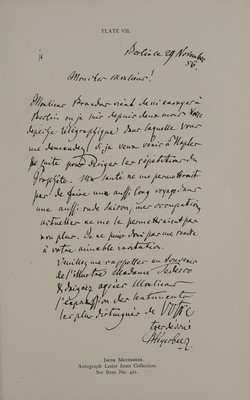 PLATE VII.
Berlin ce 29 Novembre
56.
Monsieur!
Monsieur Brandus vient de m'envoyer à
Berlin où je suis depuis deux mois Votre
depêche télégraphique dans laquelle vous
me demandez si je veux venir à Naples
de suite pour diriger les répétitions du
Prophète. Ma santé ne me permettrait
pas de faire un aussi long voyage dans
une aussi rude saison, mes occupations
actuelles ne me le permettraient pas
non plus. Je ne puis donc pas me rendre
à votre aimable invitation.
Veuillez me rappeller au souvenir
de l'illustre Madame Tedesco
& daignez agréer Monsieur
l'expression des sentiments
les plus distingués de Votre
tres dévoué
Meyerbeer
JACOB MEYERBEER.
Autograph Letter from Collection.
SEE ITEM NO. 421.